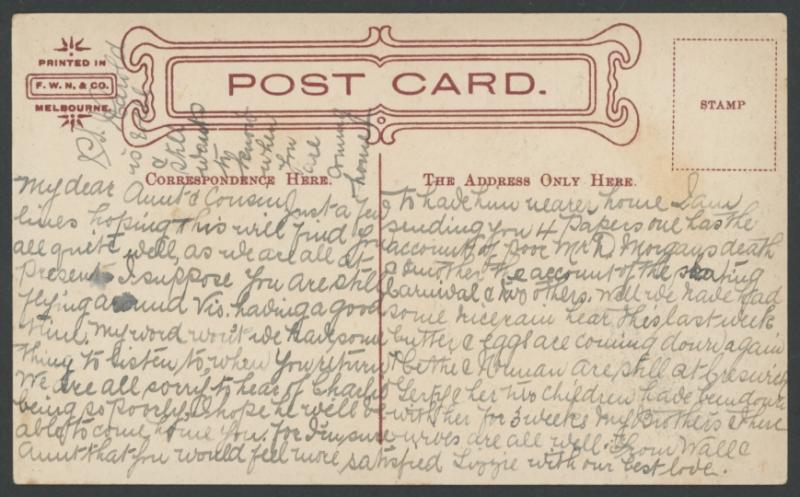 PRINTED IN
F. W. N. & CO.
MELBOURNE.
POST CARD.
STAMP
CORRESPONDENCE HERE.
THE ADDRESS ONLY HERE.
wants
to
know
when
you
are
coming
home
My dear Aunt & Cousin Just a few
lines hoping this will find you
all quite well, as we are all at
present I suppose you are still
flying around Vic. having a good
time. My word won't we have some
thing to listen to when you return
We are all sorry to hear of Charlie
being so poorly I hope he will be
able to come home you. for I'm sure
Aunt that you would feel more satisfied
to have him nearer home I am
sending you 4 Papers one has the
account of poor Mr D. Morgans death
& another the account of the skating
Carnival & two others. Well we have had
some nice rain hear this last week
butter & eggs are coming down again
& Norman are still at
& her two children have been down
with her for 3 weeks My Brothers & their
wives are all well. From Wall &
Lizzie with our best love.